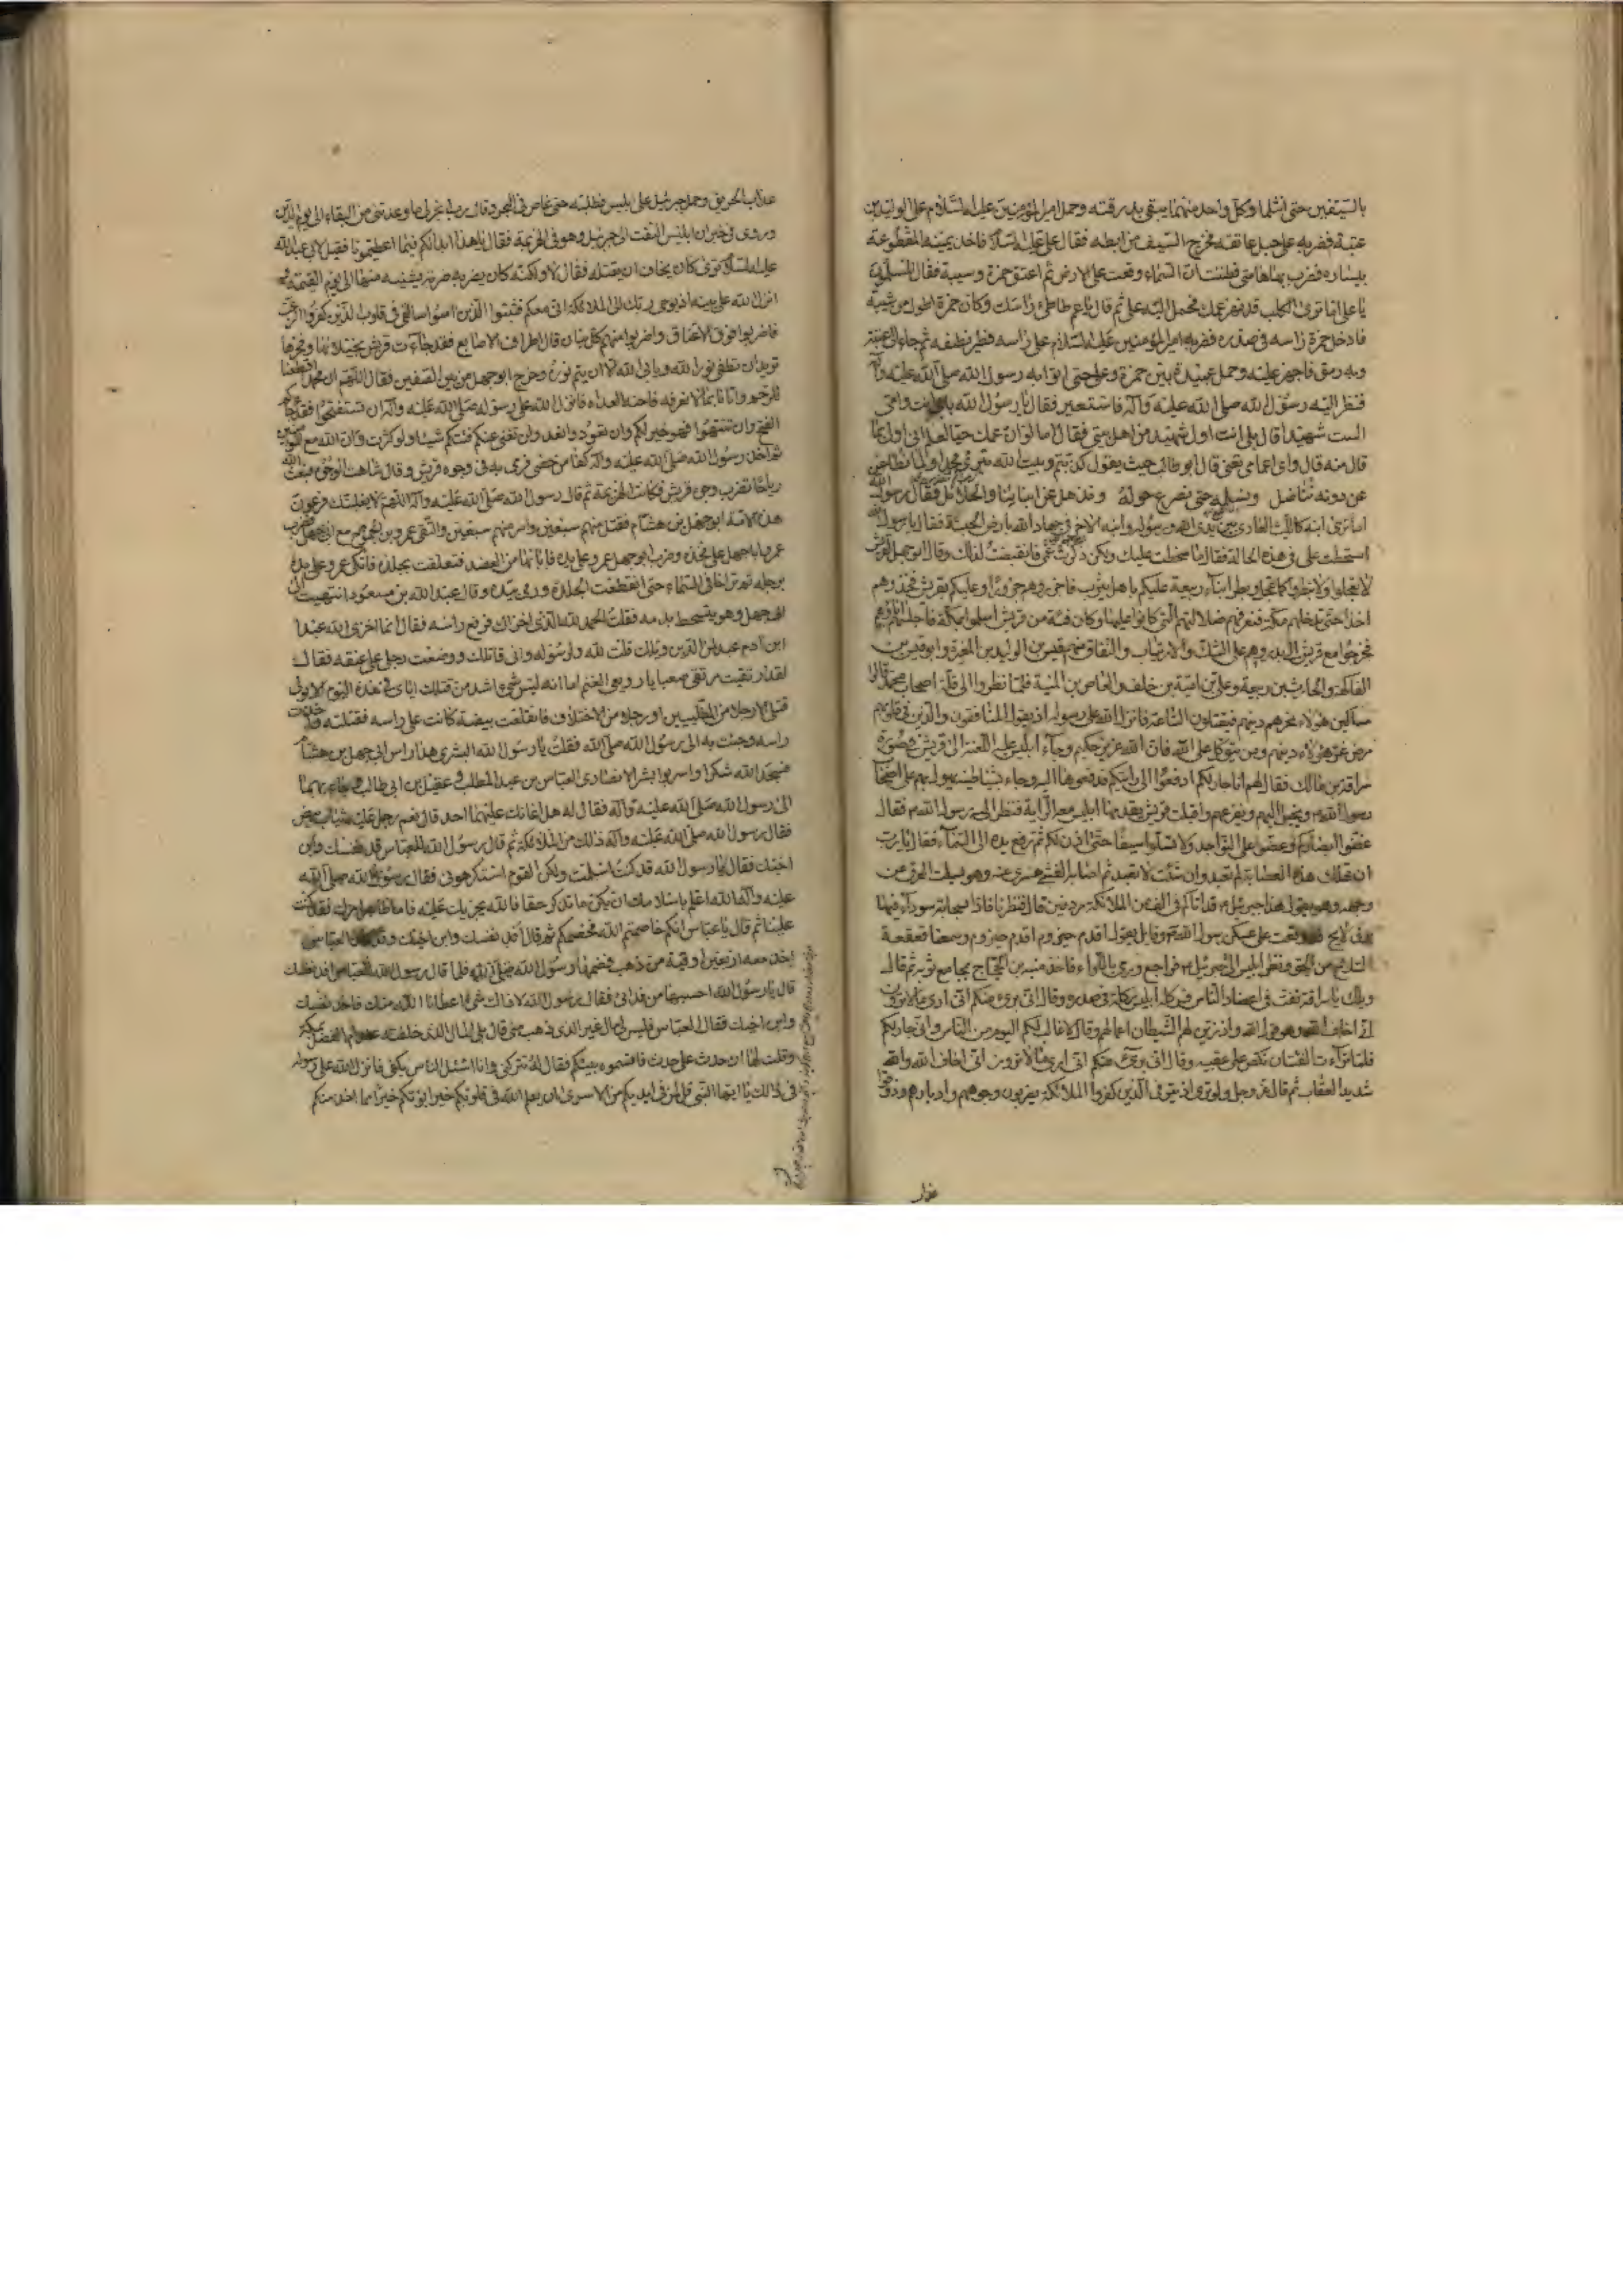 بالسيفين حتى انثلما وكل واحد منهما يتقى بدرقته وحمل امير المؤمنين عليه السلام على الوليد بن
عتبة فضربه على حبل عاتقه فخرج السيف من ابطه فقال على عليه السلام فاخذ يمينه المقطوعة
بيساره فضرب بها هامتى فظننت ان السماء وقعت على الارض ثم اعتنق حمزة وشيبة فقال المسلمون
يا على اما ترى الكلب قد نهز عمك فحمل اليه على ثم قال يا عم طاطئ راسك وكان حمزة اطول من شيبة
فادخل حمزة راسه فى صدره فضربه امير المؤمنين عليه السلام على راسه فطير نصفه ثم جاء الى عتبة
وبه رمق فاجهز عليه وحمل عبيدة بين حمزة وعلى حتى اتوا به رسول الله صلى الله عليه وآله
فنظر اليه رسول الله صلى الله عليه وآله فاستعبر فقال يا رسول الله بابى انت وامى
الست شهيدا قال بلى انت اول شهيد من اهل بيتى فقال اما لو ان عمك حيا لعلم انى اولى بما
قال منه قال واى اعمامى تعنى قال ابو طالب حيث يقول كذبتم وبيت الله نبزى محمدا ولما نطاعن
عن دونه نناضل ونسلمه حتى نصرع حوله ونذهل عن ابنائنا والحلائل فقال رسول الله
اما ترى ابنه كالليث العادى بين يدى الله ورسوله وابنه الاخر فى جهاد الله بارض الحبشة فقال يا رسول الله
اسخطت على فى هذه الحالة فقال ما سخطت عليك ولكن ذكرت عمى فانقبضت لذلك وقال ابو جهل لقريش
لا تعجلوا ولا تبطروا كما عجل وبطر ابناء ربيعة عليكم باهل يثرب فاجزروهم جزرا وعليكم بقريش فخذوهم
اخذا حتى ندخلهم مكة فنعرفهم ضلالتهم التى كانوا عليها وكان فئة من قريش اسلموا بمكة فاحتبسهم اباؤهم
فخرجوا مع قريش الى بدر وهم على الشك والارتياب والنفاق منهم قيس بن الوليد بن المغيرة وابو قيس بن
الفاكهة والحارث بن ربيعة وعلى بن امية بن خلف والعاص بن المنبه فلما نظروا الى قلة اصحاب محمد قالوا
مساكين هؤلاء غرهم دينهم فيقتلون الساعة فانزل الله على رسوله اذ يقول المنافقون والذين فى قلوبهم
مرض غر هؤلاء دينهم ومن يتوكل على الله فان الله عزيز حكيم وجاء ابليس عليه اللعنة الى قريش فى صورة
سراقة بن مالك فقال لهم انا جار لكم ادفعوا الى رايتكم فدفعوها اليه وجاء بشياطينه يهول بهم على اصحاب
رسول الله ويخيل اليهم ويفزعهم واقبلت قريش يقدمها ابليس معه الراية فنظر اليه رسول الله فقال
غضوا ابصاركم وعضوا على النواجد ولا تسلوا سيفا حتى اذن لكم ثم رفع يده الى السماء فقال يا رب
ان تهلك هذه العصابة لم تعبد وان شئت لا تعبد لا تعبد ثم اصابه الغشى فسرى عنه وهو يسلت العرق عن
وجهه وهو يقول هذا جبرئيل قد اتاكم فى الف من الملائكة مردفين قال فنظرنا فاذا بسحابة سوداء فيها
برق لايح قد وقعت على عسكر رسول الله وقايل يقول اقدم حيزوم اقدم حيزوم وسمعنا قعقعة
السلاح من الجو ونظر ابليس الى جبرئيل فراجع ورمى باللواء فاخذ منبه بن الحجاج بجامع ثوبه ثم قال
ويلك يا سراقة تفت فى اعضاد الناس فركله ابليس ركلة فى صدره وقال انى برئ منكم انى ارى ما لا ترون
انى اخاف الله وهو قول الله واذ زين لهم الشيطان اعمالهم وقال لا غالب لكم اليوم من الناس وانى جار لكم
فلما تراءت الفئتان نكص على عقبيه وقال انى برئ منكم انى ارى ما لا ترون انى اخاف الله والله
شديد العقاب ثم قال عز وجل ولو ترى اذ يتوفى الذين كفروا الملائكة يضربون وجوههم وادبارهم وذوقوا
عذاب
عذاب الحريق وحمل جبرئيل على ابليس فطلبه حتى غاص فى البحر وقال رب انجز لى ما وعدتنى من البقاء الى يوم الدين
وروى فى خبر ان ابليس التفت الى جبرئيل وهو فى الهزيمة فقال يا هذا ابدا لكم فيما اعطيتمونا فقيل لابى عبد الله
عليه السلام اترى كان يخاف ان يقتله فقال لا ولكنه كان يضربه ضربة يشينه منها الى يوم القيمة
انزل الله على نبيه اذ يوحى ربك الى الملائكة انى معكم فثبتوا الذين امنوا سالقى فى قلوب الذين كفروا الرعب
فاضربوا فوق الاعناق واضربوا منهم كل بنان قال اطراف الاصابع فقد جاءت قريش بخيلائها وفخرها
تريد ان تطفئ نور الله ويابى الله الا ان يتم نوره وخرج ابو جهل من بين الصفين فقال اللهم ان محمدا اقطعنا
للرحم واتانا بما لا نعرفه فاحنه الغداة فانزل الله على رسوله صلى الله عليه وآله ان تستفتحوا فقد جاءكم
الفتح وان تنتهوا فهو خير لكم وان تعودوا نعد ولن تغنى عنكم فئتكم شيئا ولو كثرت وان الله مع المؤمنين
ثم اخذ رسول الله صلى الله عليه وآله كفا من حصى فرمى به فى وجوه قريش وقال شاهت الوجوه فبعث الله
رياحا تضرب وجوه قريش فكانت الهزيمة ثم قال رسول الله صلى الله عليه وآله اللهم لا يفلتنك فرعون
هذه الامة ابو جهل بن هشام فقتل منهم سبعين واسر منهم سبعين والتقى عمرو بن الجموح مع ابى جهل فضرب
عمرو ابا جهل على فخذه وضرب ابو جهل عمرو على يده فابانها من العضد فتعلقت بجلدة فاتكى عمرو على يده
برجله ثم تراخا فى السماء حتى انقطعت الجلدة ورمى بيده وقال عبد الله بن مسعود انتهيت الى
ابى جهل وهو يتشحط بدمه فقلت الحمد لله الذى اخزاك فرفع راسه فقال انما اخزى الله عبد
ابن ام عبد لمن الدين ويلك قلت لله ولرسوله وانى قاتلك ووضعت رجلى على عنقه فقال
لقد ارتقيت مرتقى صعبا يا رويعى الغنم اما انه ليس شئ اشد من قتلك اياى فى هذا اليوم الا تولى
قتلى الا رجلا من المطلبيين او رجلا من الاحلاف فانقلعت بيضة كانت على راسه فقتلته واخذت
راسه وجئت به الى رسول الله صلى الله فقلت يا رسول الله البشرى هذا راس ابى جهل بن هشام
فسجد لله شكرا واسر ابو بشر الانصارى العباس بن عبد المطلب وعقيل بن ابى طالب وجاء بهما
الى رسول الله صلى الله عليه وآله فقال له هل اعانك عليهما احد قال نعم رجل عليه ثياب بيض
فقال رسول الله صلى الله عليه وآله ذلك من الملائكة ثم قال رسول الله للعباس افد نفسك وابن
اخيك فقال يا رسول الله قد كنت اسلمت ولكن القوم استكرهونى فقال رسول الله صلى الله
عليه وآله الله اعلم باسلامك ان يكن ما تذكر حقا فالله يجزيك عليه فاما ظاهر امرك فقد كنت
علينا ثم قال يا عباس انكم خاصمتم الله فخصمكم ثم قال افد نفسك وابن اخيك وقد كان العباس
اخذ معه اربعين اوقية من ذهب فغنمها رسول الله صلى الله فلما قال رسول الله للعباس افد نفسك
قال يا رسول الله احسبها من فدائى فقال رسول الله لا ذاك شئ اعطانا الله منك فافد نفسك
وابن اخيك فقال العباس فليس لى مال غير الذى ذهب منى قال بلى المال الذى خلفته عند ام الفضل بمكة
وقلت لها ان حدث على حدث فاقسموه بينكم فقال له تتركنى وانا اسئل الناس بكفى فانزل الله على رسوله
فى ذلك يا ايها النبى قل لمن فى ايديكم من الاسرى ان يعلم الله فى قلوبكم خيرا يؤتكم خيرا مما اخذ منكم